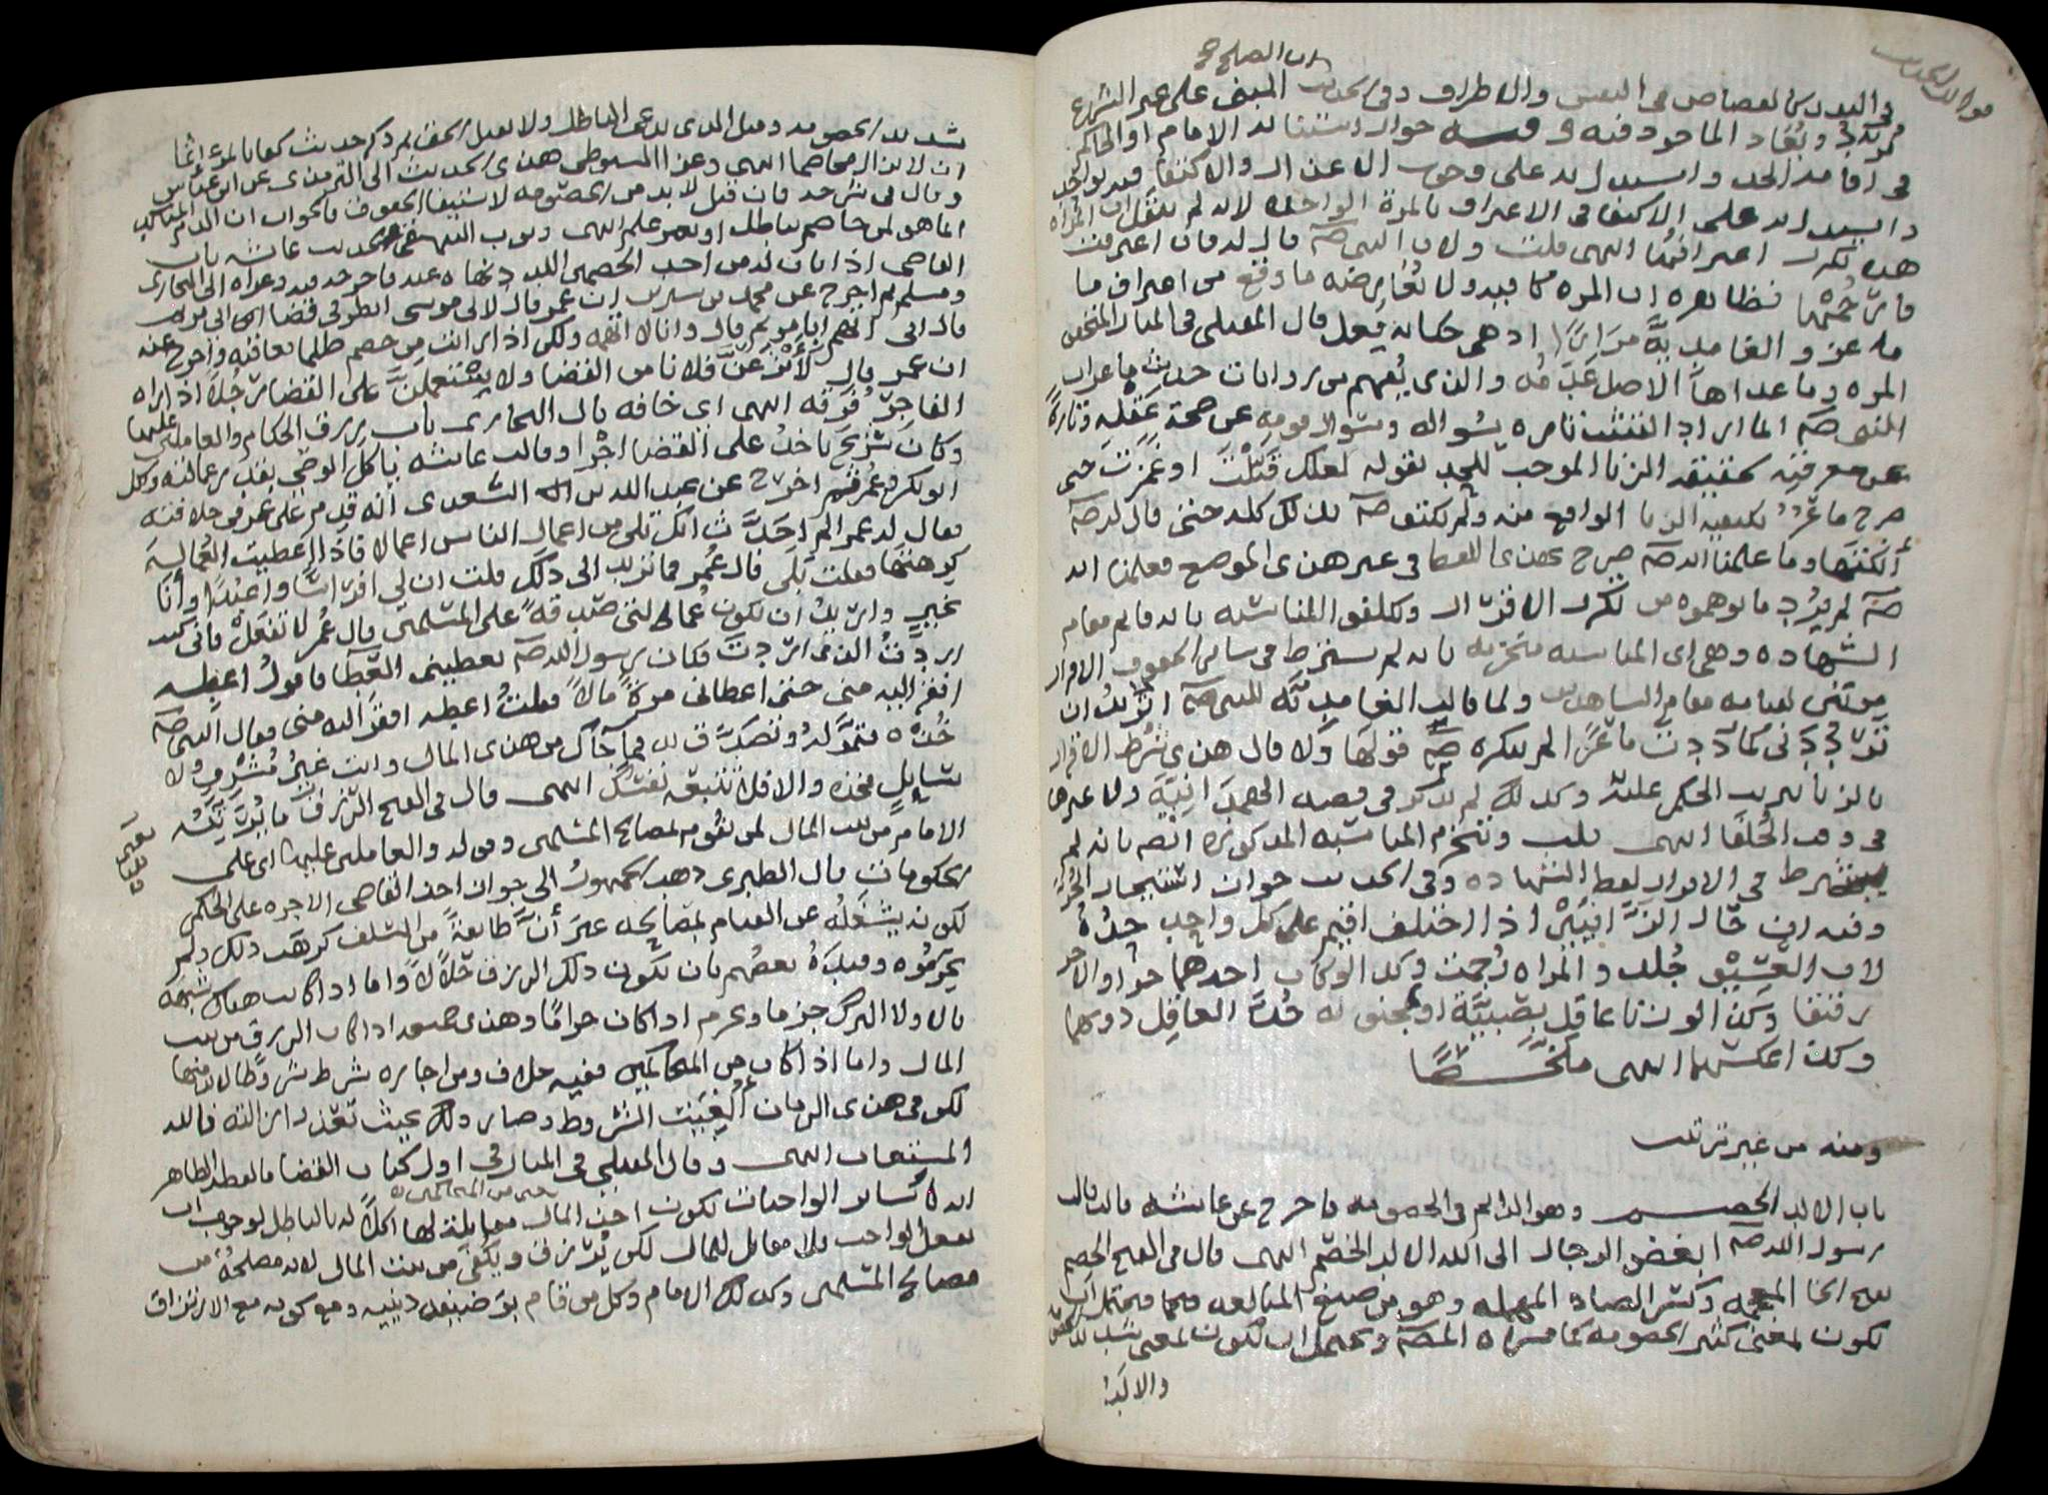 فوائد الحديث
وان الصلح
في البدن كالقصاص في النفس والاطراف وفي الحديث المبني على غير الشرع
مردود ويعاد الماخوذ فيه وفيه جواز استنابة الامام او الحاكم
في اقامة الحد واستدل به على وجوب الاعذار والاكتفا فيه بواحد
واستدل به على الاكتفا في الاعتراف بالمرة الواحدة لانه لم ينقل ان المراة
هذه تكرر اعترافها انتهى قلت ولان النبي صلم قال له فان اعترفت
فارجمها فظاهره ان المرة كافية ولا يعارضه ما وقع من اعتراف ما
عز والغامدية مرارا اذ هي حكاية فعل قال المقبلي في المنار المتحقق
المرة وما عداها الاصل عدمه والذي يفهم من روايات حديث ماعز ان
النبي صلم انما اراد التثبت تارة بسواله وسوال قومه عن صحة عقله وتارة
عن معرفته بحقيقة الزنا الموجب للحد بقوله لعلك قبلت او غمزت حتى
صرح ماعز بكيفية الزنا الواقع منه ولم يكتف صلم بذلك كله حتى قال له صلم
انكتها وما علمنا انه صلم صرح بهذى اللفظ في غير هذى الموضع فعلمنا انه
صلم لم يرد ما توهموه من تكرار الاقرار وتكلفوا المناسبة بانه قايم مقام
الشهادة وهي اى المناسبة منخرمة بانه لم يشترط في ساير الحقوق الاقرار
مرتين لقيامه مقام الشاهدين ولما قالت الغامدية للنبي صلم اتريد ان
ترددني كما رددت ماعزا لم ينكره صلم قولها ولا قال هذى شرط الاقرار
بالزنا لترتب الحكم عليه وكذلك لم يذكر في قصة الهمدانية ولا غيرها
في وقت الخلفا انتهى قلت وتنخرم المناسبة المذكورة ايضا بانه لم
يشترط في الاقرار لفظ الشهادة وفي الحديث جواز استيجار الحر
وفيه ان حال الزانيين اذا اختلف اقيم على كل واحد حده
لان العسيف جلد والمراة رجمت وكذا لو كان احدهما حرا والاخر
رقيقا وكذا لو زنا عاقل بصبية او مجنونة حد العاقل دونهما
وكذا عكسهما انتهى ملخصا
ومنه من غير ترتيب
باب الالد الخصم وهو الدايم في الخصومة فاخرج عن عايشة قالت قال
رسول الله صلم ابغض الرجال الى الله الالد الخصم انتهى قال في الفتح الخصم
بفتح الخا المعجمة وكسر الصاد المهملة وهو من صيغ المبالغة فيحتمل ان
يكون لمعنى كثير الخصومة كما فسره المصنف ويحتمل ان يكون لمعنى شديد
والالد
شديد الخصومة وقيل الذي يدعي الباطل ولا يقبل الحق ثم ذكر حديث كفا بالمرء اثما
ان لا يزال مخاصما انتهى وعزا السيوطي هذى الحديث الى الترمذي عن ابن عباس
وقال في شرحه فان قيل لا بد من الخصومة لاستيفا الحقوق فالجواب ان الذم المتاكد
انما هو لمن خاصم بباطل او بغير علم انتهى
القاضي اذا بان له من احد الخصمين اللدد نهاه عنه فاخرجه فيه وعزاه الى البخارى
ومسلم ثم اخرج عن محمد بن سيرين ان عمر قال لابي موسى انظر في قضا ابي مريم
قال اني لا اتهم ابا مريم قال وانا لا اتهمه ولكن اذا رايت من خصم ظلما فعاقبه واخرج عنه
ان عمر قال لأنزعن فلانا من القضا ولاستعملن على القضا رجلا اذا راه
الفاجر فرقه انتهى اي خافه قال البخارى باب رزق الحكام والعاملين عليها
وكان شريح ياخذ على القضا اجرا وقالت عايشة ياكل الوصي بقدر عمالته واكل
ابو بكر وعمر ثم اخرج عن عبد الله بن السعدى انه قدم على عمر في خلافته
فقال له عمر الم احدث انك تلي من اعمال الناس اعمالا فاذا اعطيت العمالة
كرهتها فقلت بلى قال عمر فما تريد الى ذلك قلت ان لي افراسا واعبدا وانا
بخير واريد ان تكون عمالتي صدقة على المسلمين قال عمر لا تفعل فاني كنت
اردت الذي اردت فكان رسول الله صلم يعطيني العطا فاقول اعطه
افقر اليه مني حتى اعطاني مرة مالا فقلت اعطه افقر اليه مني فقال النبي صلم
خذه فتموله وتصدق به فما جاك من هذى المال وانت غير مشرف ولا
سايل فخذه والا فلا تتبعه نفسك انتهى قال في الفتح الرزق ما يرتبه
الامام من بيت المال لمن يقوم بمصالح المسلمين وقوله والعاملين عليها اى على
الحكومات قال الطبرى ذهب الجمهور الى جواز اخذ القاضي الاجرة على الحكم
لكونه يشغله عن القيام بمصالحه غير أن طايفة من السلف كرهت ذلك ولم
يحرموه وقيده بعضهم بان يكون ذلك الرزق حلالا واما اذا كانت هناك شبهة
فالاولا الترك جزما ويحرم اذا كان حراما وهذى جميعه اذا كان الرزق من بيت
المال واما اذا كان من المتحاكمين ففيه خلاف ومن اجازه شرط شروطا لا بد منها
لكن في هذى الزمان ألغيت الشروط وصار ذلك بحيث تعذر ازالته فالله
المستعان انتهى وقال المقبلي في المنار في اول كتاب القضا ما لفظه الظاهر
انه كساير الواجبات تكون اخذ المال مقابلة لها اكلا له بالباطل لوجوب ان
حتى من المتحاكمين
يفعل الواجب بلا مقابل للمال لكن يرتزق ويكفى من بيت المال لانه مصلحة من
مصالح المسلمين وكذلك الامام وكل من قام بوضيفة دينية ومع كونه مع الارتزاق